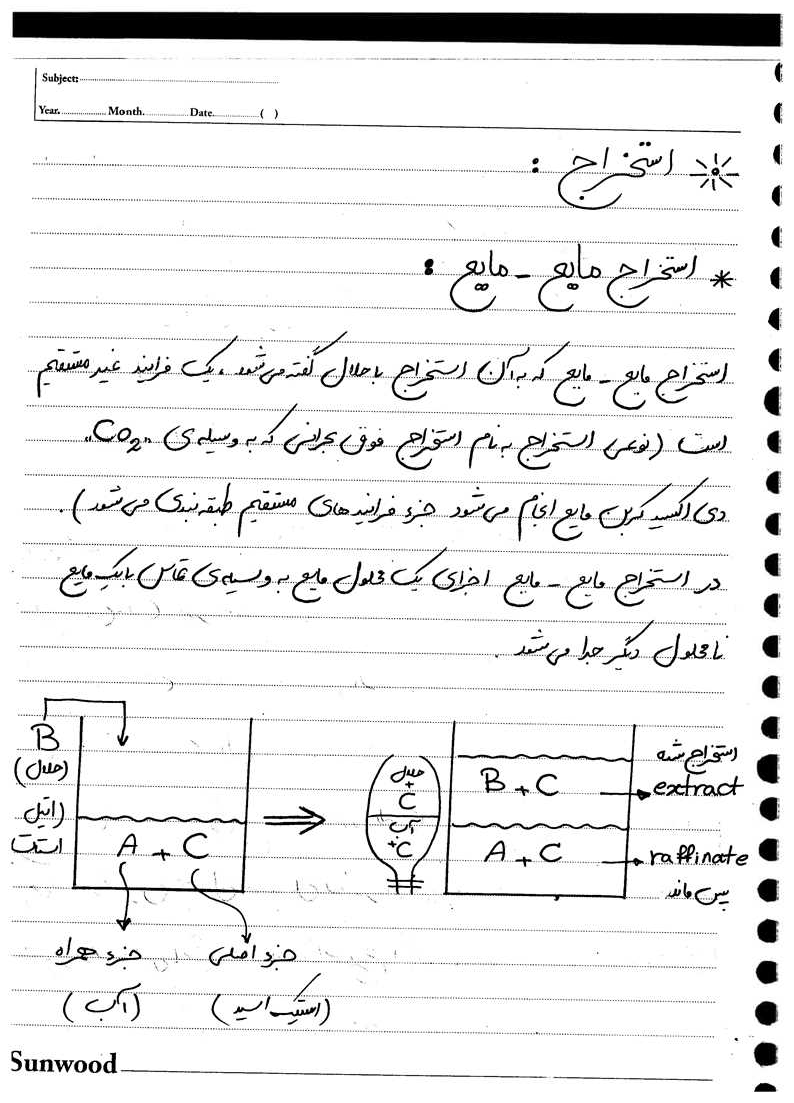 Subject:
Year. Month. Date. ( )
استخراج :
* استخراج مایع - مایع :
استخراج مایع - مایع که به آن استخراج با حلال گفته می‌شود، یک فرایند غیر مستقیم
است (نوعی استخراج به نام استخراج فوق بحرانی که به وسیله‌ی "CO2"
دی اکسید کربن مایع انجام می‌شود جزء فرایندهای مستقیم طبقه بندی می‌شود).
در استخراج مایع - مایع اجزای یک محلول مایع به وسیله‌ی تماس با یک مایع
نامحلول دیگر جدا می‌شود.
B
(حلال)
(اتیل
استات
A + C
حلال
+
C
آب
+
C
B + C
استخراج شده
extract
A + C
raffinate
پس ماند
جزء اصلی
(استیک اسید)
جزء همراه
(آب)
Sunwood